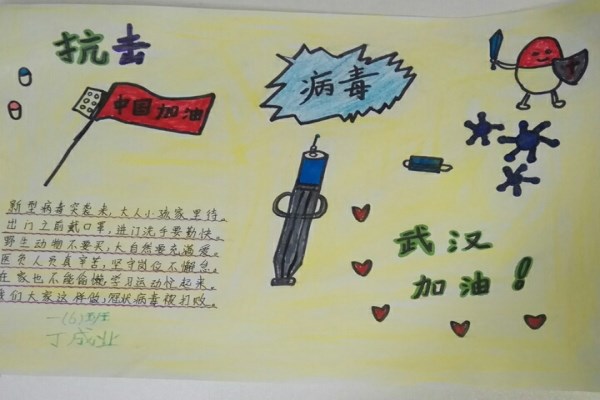 抗击
病毒
中国加油
新型病毒突袭来,大人小孩家里待。
出门之前戴口罩,进门洗手要勤快。
野生动物不要买,大自然要充满爱。
医务人员真辛苦,坚守岗位不懈怠。
在家也不能偷懒,学习运动忙起来。
我们大家这样做,冠状病毒很打败。
一(6)班
丁成业
武汉
加油!